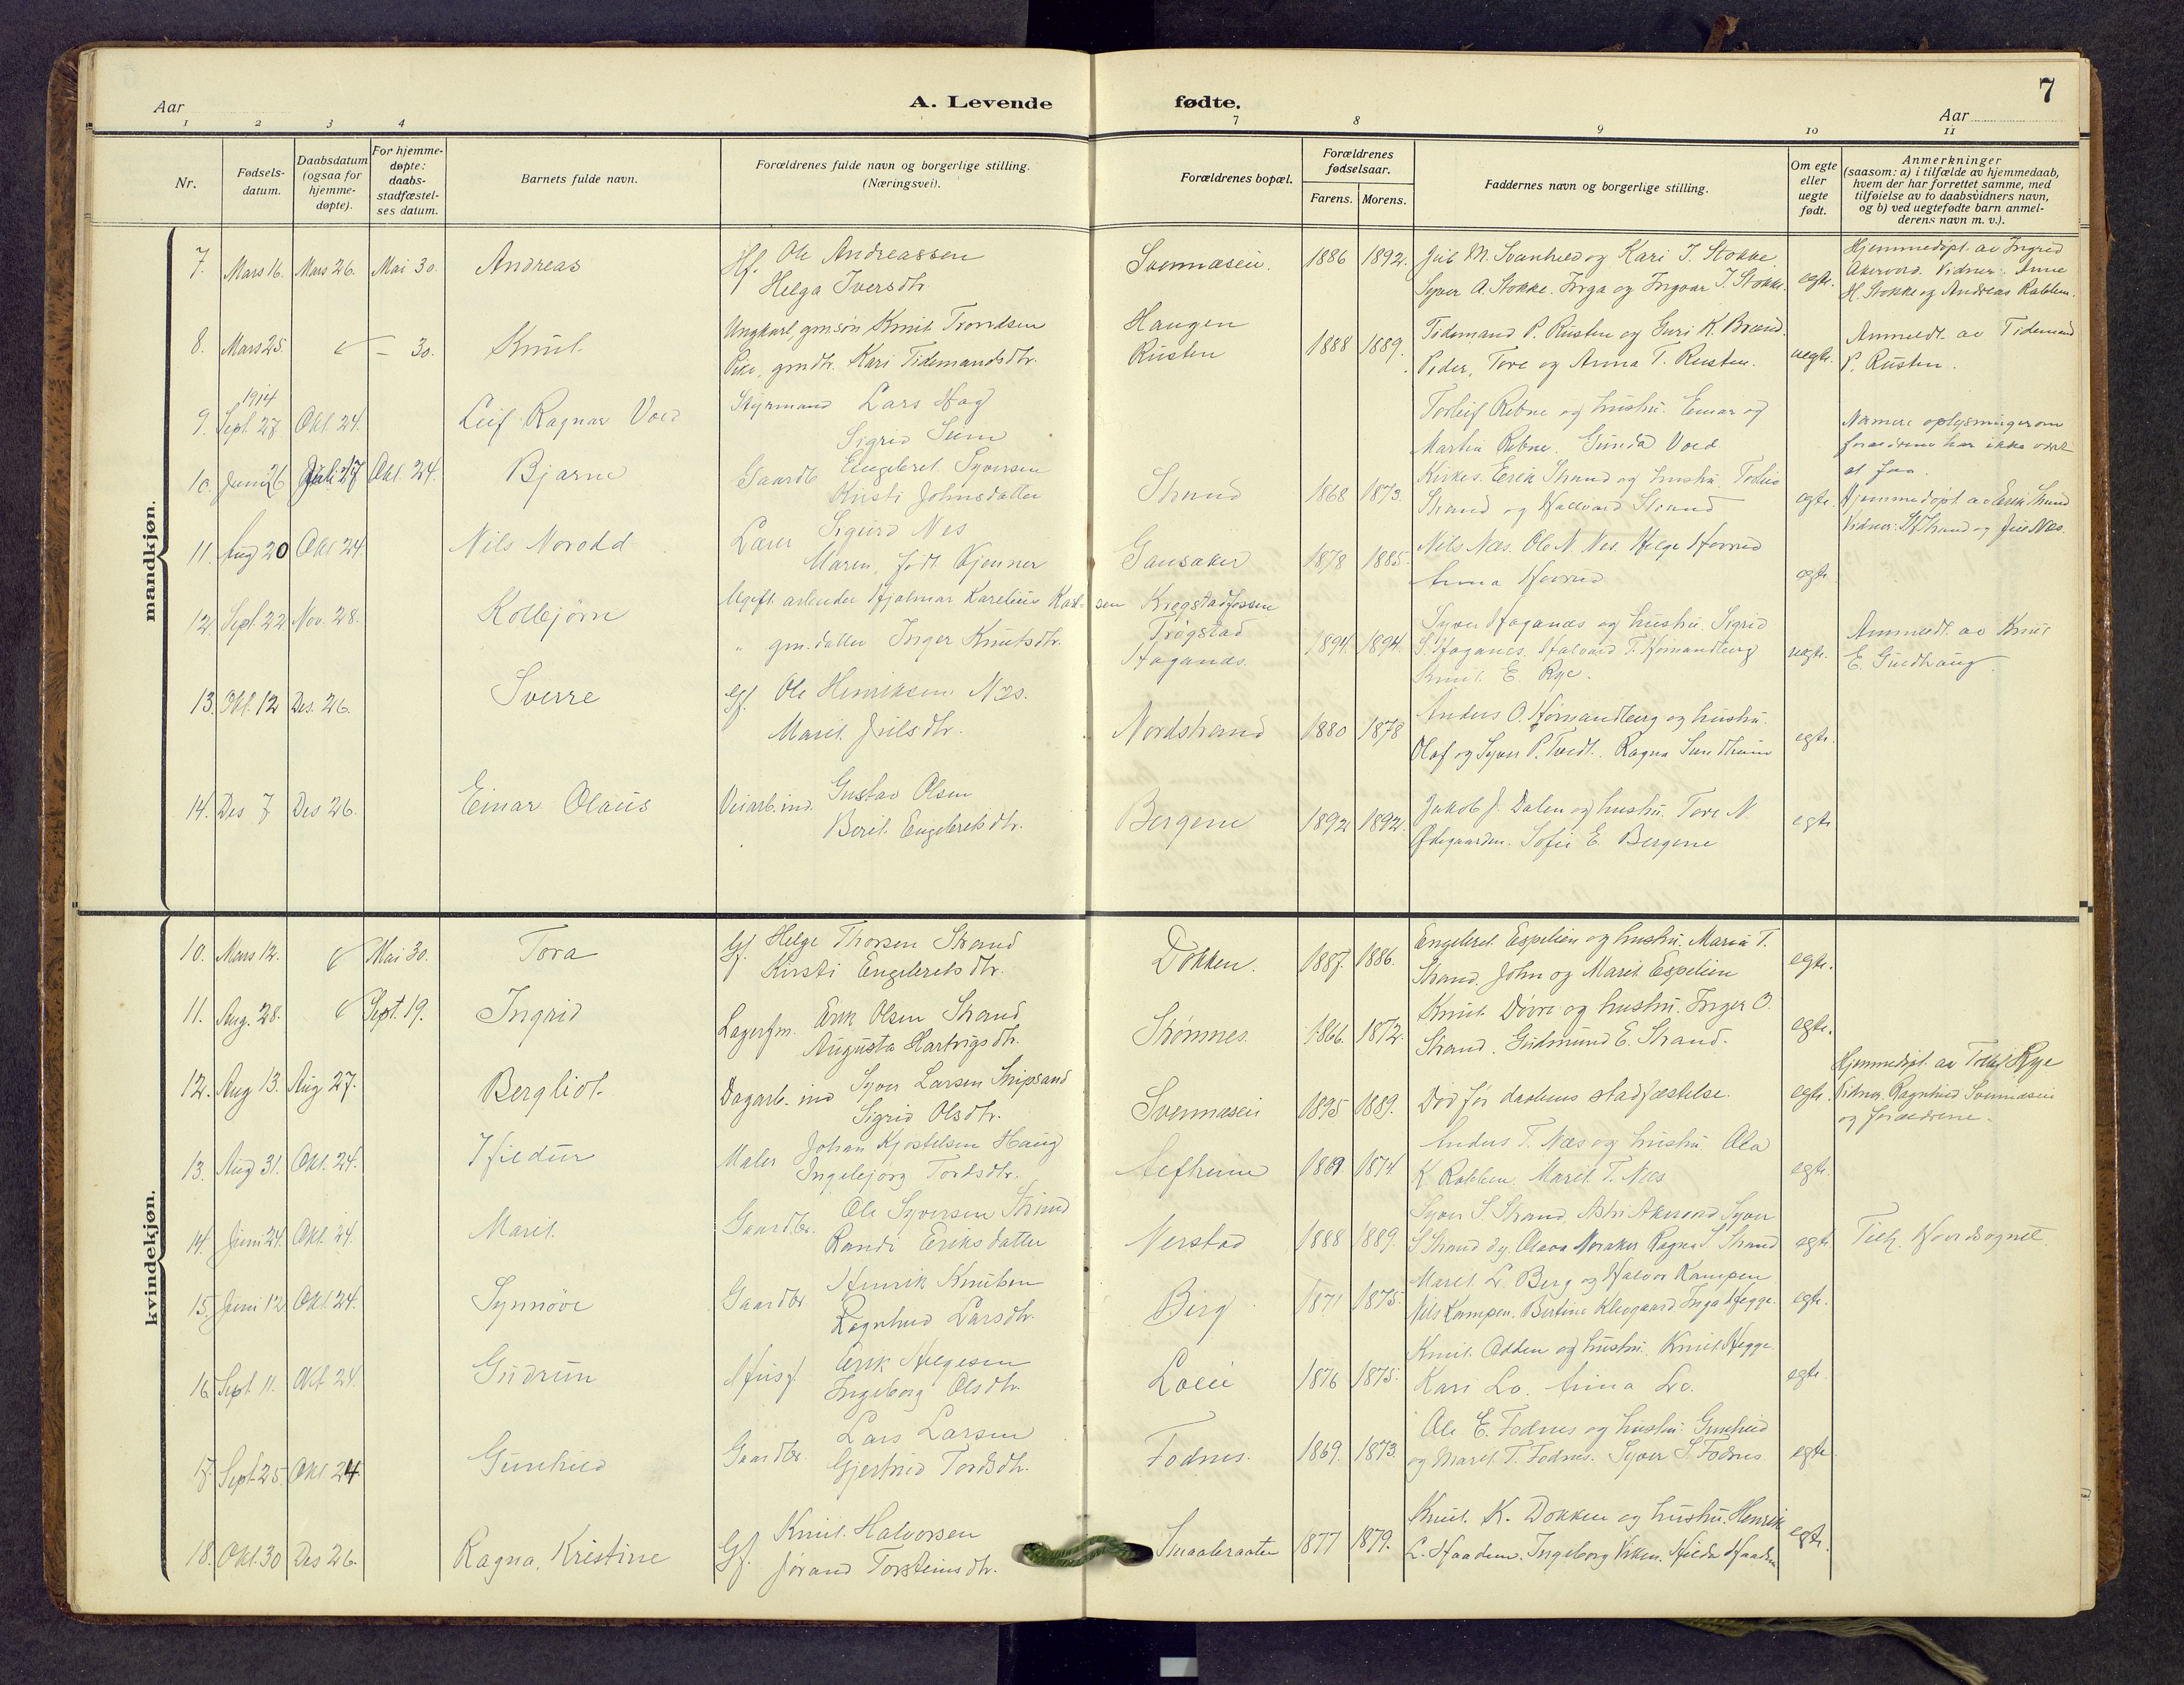 7
Aar
A. Levende fødte.
Aar
1 2 3 4 7 8 9 10 11
Nr.
Fødsels-
datum.
Daabsdatum
(ogsaa for
hjemme-
døpte).
For hjemme-
døpte:
daabs-
stadfæstel-
ses datum.
Barnets fulde navn.
Forældrenes fulde navn og borgerlige stilling.
(Næringsvei).
Forældrenes bopæl.
Forældrenes
fødselsaar.
Farens. Morens.
Faddernes navn og borgerlige stilling.
Om egte
eller
uegte
født.
Anmerkninger
(saasom: a) i tilfælde av hjemmedaab,
hvem der har forrettet samme, med
tilføielse av to daabsvidners navn,
og b) ved uegtefødte barn anmel-
derens navn m. v.).
mandkjøn.
7. Mars 16. Mars 26. Mai 30. Andreas
Ole Andreassen
Helga Iversdtr.
1886 1892.
M. Svenhed og Kari I. Stokke
Syver A. Stokke. Inga og Ingvar I. Stokke.
egte.
Hjemmedøpt av Ingrid
Akervold. Vidner: Anne
H. Stokke og Andreas Robben.
8. Mars 25. – 30. Knut
Ungkarl, gmsøn Knut Trondsen
Pike, gmdtr. Kari Tidemandsdtr.
Haugen
Rusten
1888 1889.
Tidemand P. Rusten og Guri K. Brænd.
Peder, Tore og Anna T. Rusten.
uegte.
Anmeldt av Tidemand
P. Rusten.
1914
9. Sept. 27 Okt. 24. Leif Ragnar Vold
Styrmand Lars Hag
Sigrid
Torleif Rebne og hustru. Einar og
Martin Rebne. Gunda Vold
Nærmere oplysninger om
forældrene har ikke vært
at faa.
10. Juni 26 Juli 27 Okt. 24. Bjarne
Gaardb. Engebret Syversen
Kristi Johnsdatter
Strand
1868 1873.
Kirkes. Erik Strand og hustru. Torleiv
Strand og Hallvard Strand
egte.
Hjemmedøpt av Erik Strand
Vidner:
11. Aug 20 Okt 24. Nils Norodd
Lærer Sigurd Nes
Maren, født Kjenner
Gausaker
1878 1885.
Nils Næs. Ole N. Nes. Helge Hovrud
Anna Hovrud
egte
12. Sept. 22. Nov. 28. Kolbjørn
Ugift arbeider Hjalmar Karelius Karl-sen
" gm.datter Inger Knutsdtr.
Krogstadfossen
Trøgstad
Haganes.
1894. 1894.
Syver Haganes og hustru. Sigrid
S. Haganes. Halvard T. Kornandberg
Knut E. Rye.
uegte.
Anmeldt av Knut
E. Guldhaug.
13. Okt. 12 Des. 26. Sverre
Gf. Ole Henriksen Næs.
Marit Juelsdtr.
Nordstrand
1880 1878
Anders O. Kornandberg og hustru.
Olaf og Syver P. Tvedt. Ragna Sundheim
egte.
14. Des 7 Des 26. Einar Olaus
Veiarb. ind. Gustav Olsen
Berit Engebretsdtr.
Bergene
1892 1892.
Jakob J. Dalen og hustru. Tore N.
Ødegaarden. Sofie E. Bergene
egte
kvindekjøn.
10. Mars 12. Mai 30. Tora
Gf. Helge Thorsen Strand
Kirsti Engebretsdtr.
Dokken.
1887. 1886.
Engebret Espelien og hustru. Marie T.
Strand. John og Marit Espelien
egte.
11. Aug. 28. Sept. 19. Ingrid
Lagerfm. Erik Olsen Strand
Augusta Hartvigsdtr.
Strømnes.
1866. 1872.
Knut Døvre og hustru. Inger O.
Strand. Gudmund E. Strand.
egte.
12. Aug 13. Aug 27. Bergliot
Dagarb. ind Syver Larsen Snipsand
Sigrid Olsdtr.
1895 1889.
Død før daabens stadfæstelse.
egte.
Hjemmedøpt av Rye
Vidner. Ragnhild
og forældrene.
13. Aug 31. Okt. 24. Hildur
Maler Johan Kjostelsen Haug
Ingebjørg Tordsdtr.
1869 1874
Anders T. Næs og hustru. Ola
K Robben. Marit T. Næs
egte.
14. Juni 24. Okt. 24. Marit
Gaardbr. Ole Syversen Strand
Randi Eriksdatter
Nerstad
1888 1889.
Syver S. Strand, Astri Akervold Syver
S. Strand d.y. Olava Noraker Ragna S. Strand
egte
15. Juni 12 Okt 24. Synnøve
Gaardbr. Henrik Knutsen
Ragnhild Larsdtr.
Berg
1871 1875.
Marit L. Berg og Halvor Kampen
Nils Kampen. Bertine Klevgaard. Inga Hegge.
egte.
16 Sept 11. Okt 24. Gudrun
Erik Helgesen
Ingeborg Olsdtr.
1876 1875.
Knut Odden og hustru. Knut Hegge.
Kari Lo. Anna Lo.
egte.
17. Sept. 25 Okt 24 Gunhild
Gaardbr. Lars Larsen
Gjertrud Tordsdtr.
Fodnes.
1869. 1873.
Ole E. Fodnes og hustru. Gunhild
og Marit T. Fodnes. Syver S. Fodnes
egte.
18. Okt. 30 Des 26. Ragna, Kristine
Gf. Knut Halvorsen
Jørand Torsteinsdtr.
1877 1879.
Knut K. Dokken og hustru. Henrik
L. Haadem. Ingeborg Viken. Hilda Haadem
egte.